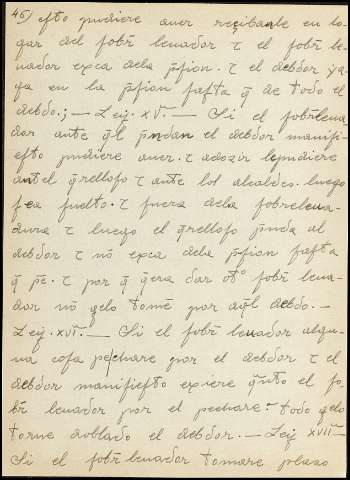 46) esto pudiere auer reçibanle en lo-
gar del sobr̄ leuador ⁊ el sobr̄ le-
uador exca dela p̄sion. ⁊ el debdor ya-
ga en la p̄sion fasta q̄ de todo el
debdo.; — Leȳ. xv̄. — Si el sobr̄leua
dor ante q̄l p̄ndan el debdor manifi-
esto pudiere auer. ⁊ adozir le pudiere
antel q̄relloso ⁊ ante los alcaldes. luego
sea suelto. ⁊ fuera dela sobreleua-
dura ⁊ luego el q̄relloso p̄nda al
debdor ⁊ nō exca dela p̄sion fasta
q̄ pē. ⁊ por q̄ q̄era dar otº sobr̄ leua-
dor nō gelo tome por aq̄l debdo. —
Leȳ. xvī. — Si el sobr̄ leuador algu-
na cosa pechare por el debdor ⁊ el
debdor manifiesto exiere q̄nto el so-
br̄ leuador por el pechare: todo gelo
torne doblado el debdor. — Leȳ xvii —
Si el sobr̄ leuador tomare plazo